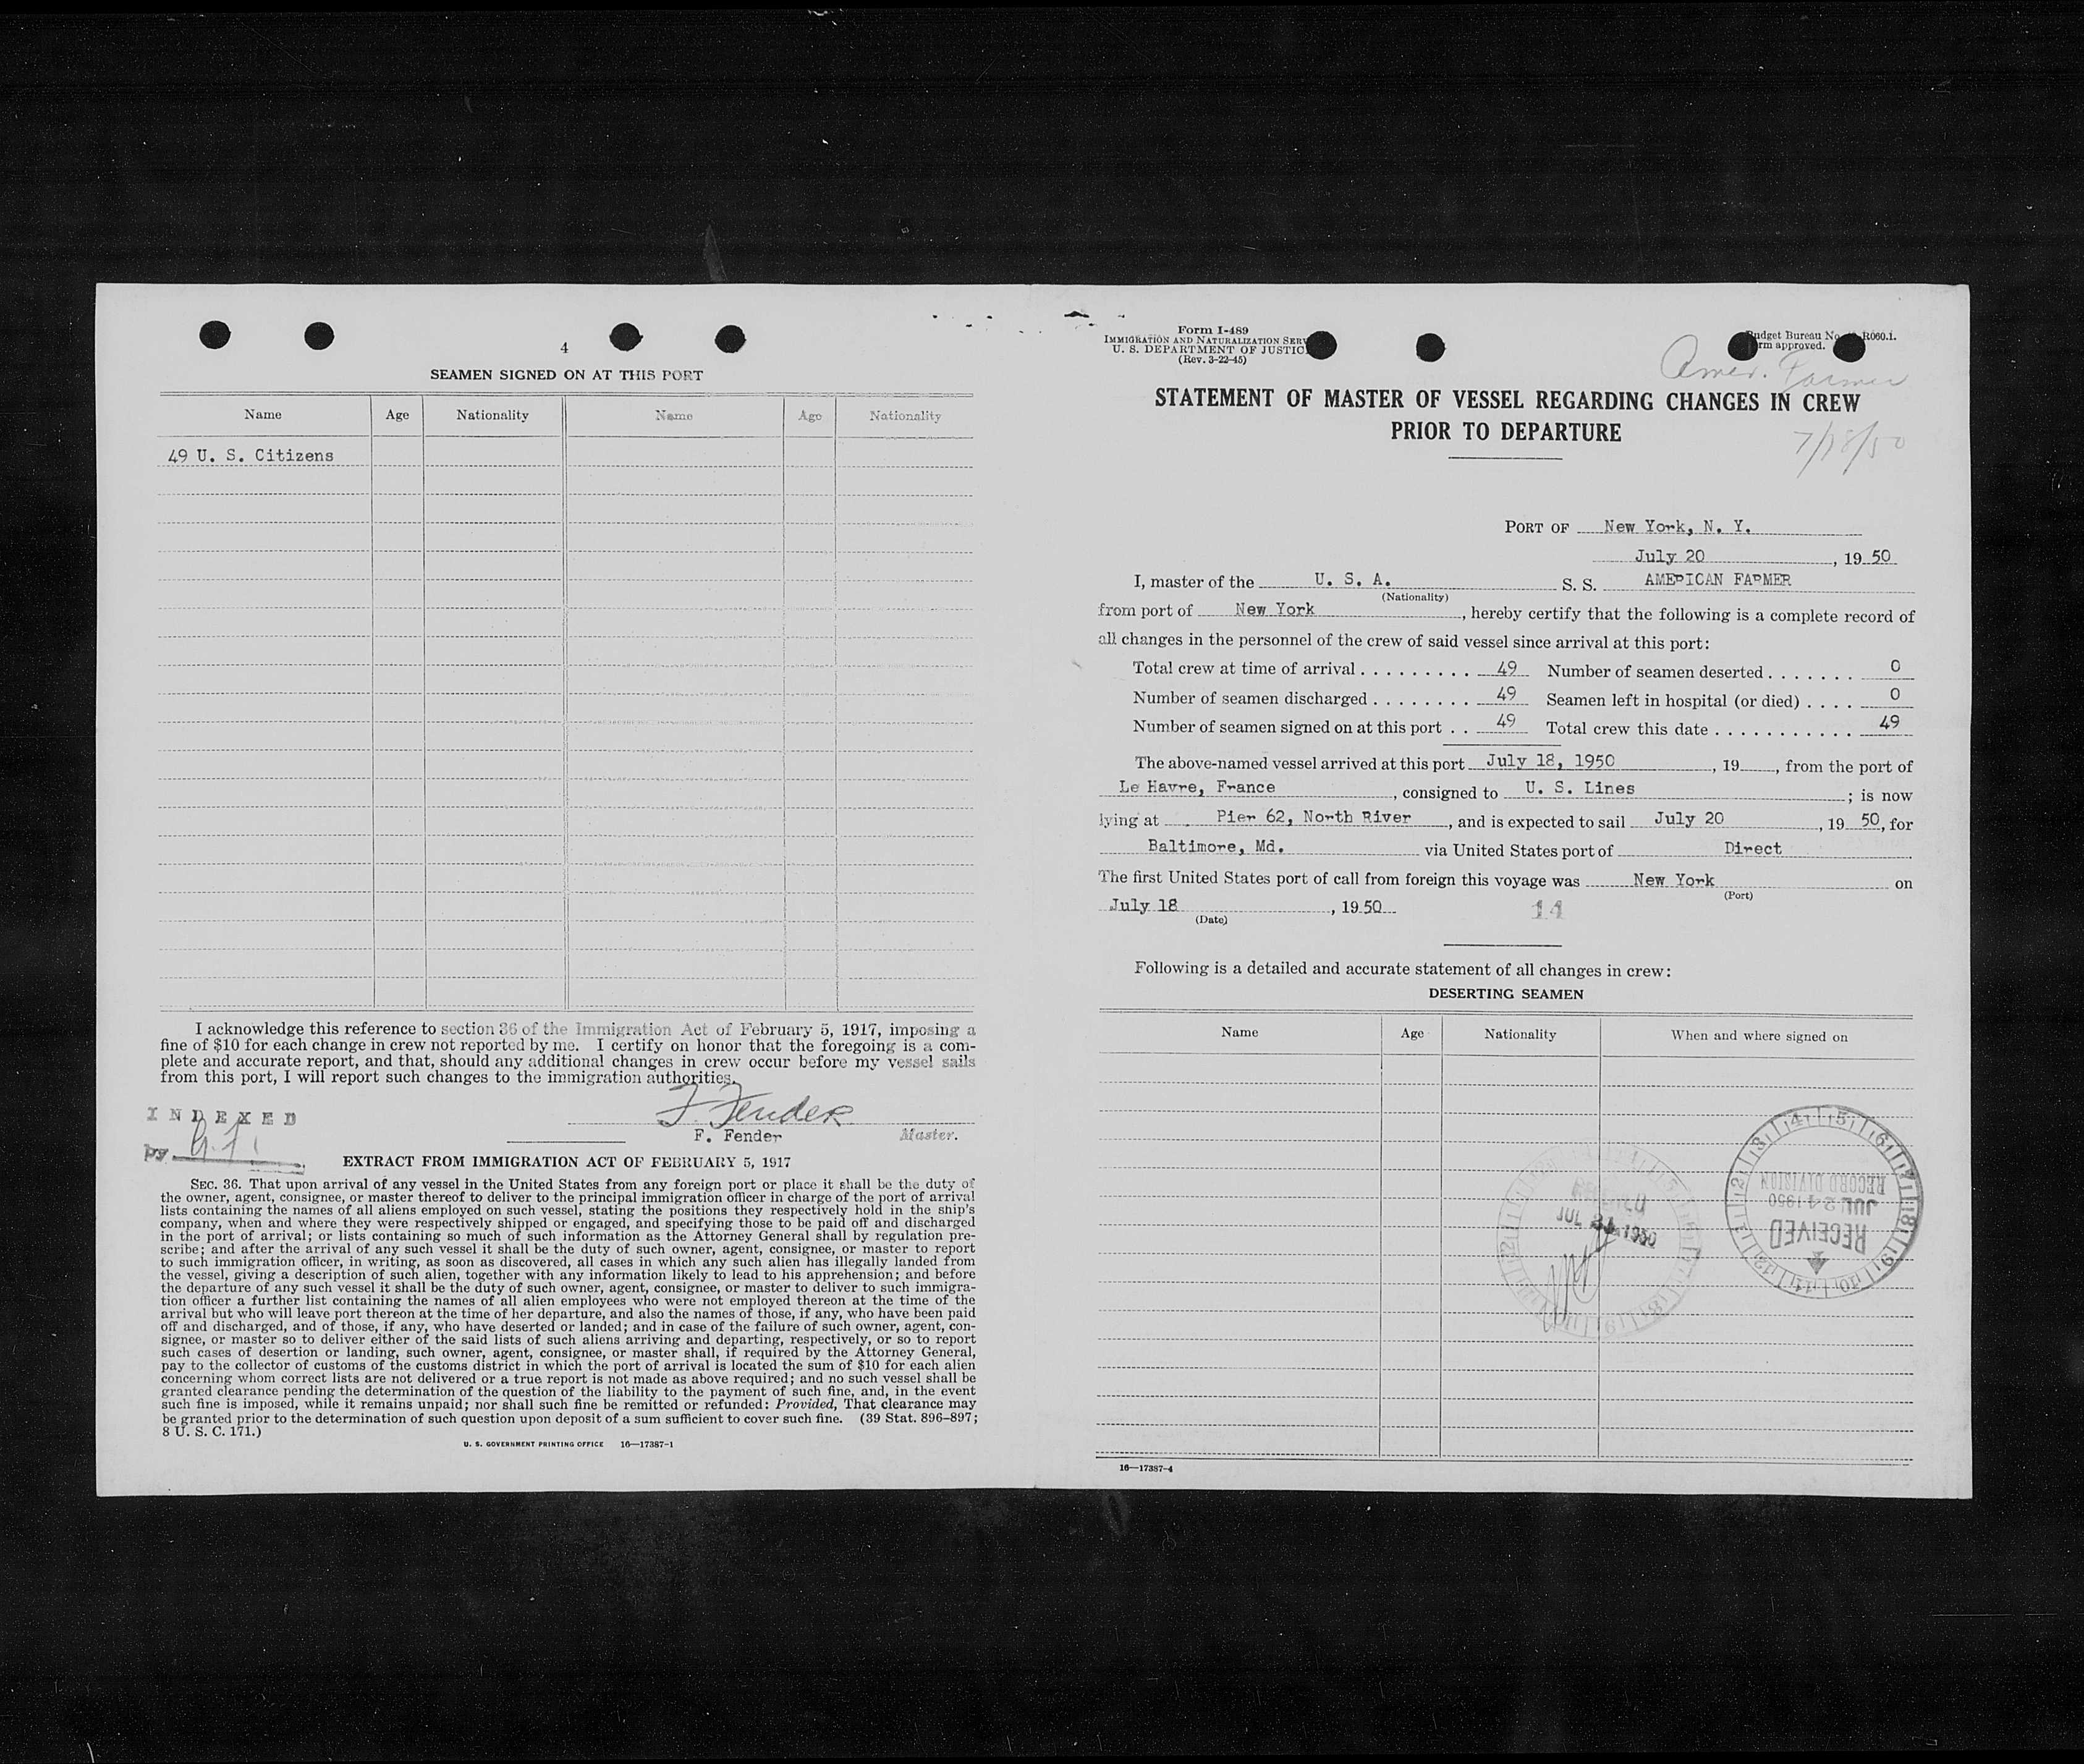 4
SEAMEN SIGNED ON AT THIS PORT
Name Age Nationality Name Age Nationality
49 U. S. Citizens
I acknowledge this reference to section 36 of the Immigration Act of February 5, 1917, imposing a
fine of $10 for each change in crew not reported by me. I certify on honor that the foregoing is a com-
plete and accurate report, and that, should any additional changes in crew occur before my vessel sails
from this port, I will report such changes to the immigration authorities.
F. Fender
INDEXED
F. Fender Master.
by
EXTRACT FROM IMMIGRATION ACT OF FEBRUARY 5, 1917
SEC. 36. That upon arrival of any vessel in the United States from any foreign port or place it shall be the duty of
the owner, agent, consignee, or master thereof to deliver to the principal immigration officer in charge of the port of arrival
lists containing the names of all aliens employed on such vessel, stating the positions they respectively hold in the ship's
company, when and where they were respectively shipped or engaged, and specifying those to be paid off and discharged
in the port of arrival; or lists containing so much of such information as the Attorney General shall by regulation pre-
scribe; and after the arrival of any such vessel it shall be the duty of such owner, agent, consignee, or master to report
to such immigration officer, in writing, as soon as discovered, all cases in which any such alien has illegally landed from
the vessel, giving a description of such alien, together with any information likely to lead to his apprehension; and before
the departure of any such vessel it shall be the duty of such owner, agent, consignee, or master to deliver to such immigra-
tion officer a further list containing the names of all alien employees who were not employed thereon at the time of the
arrival but who will leave port thereon at the time of her departure, and also the names of those, if any, who have been paid
off and discharged, and of those, if any, who have deserted or landed; and in case of the failure of such owner, agent, con-
signee, or master so to deliver either of the said lists of such aliens arriving and departing, respectively, or so to report
such cases of desertion or landing, such owner, agent, consignee, or master shall, if required by the Attorney General,
pay to the collector of customs of the customs district in which the port of arrival is located the sum of $10 for each alien
concerning whom correct lists are not delivered or a true report is not made as above required; and no such vessel shall be
granted clearance pending the determination of the question of the liability to the payment of such fine, and, in the event
such fine is imposed, while it remains unpaid; nor shall such fine be remitted or refunded: Provided, That clearance may
be granted prior to the determination of such question upon deposit of a sum sufficient to cover such fine. (39 Stat. 896–897;
8 U. S. C. 171.)
U. S. GOVERNMENT PRINTING OFFICE 16—17387-1
Form I-489
IMMIGRATION AND NATURALIZATION SERV
U. S. DEPARTMENT OF JUSTIC
(Rev. 3-22-45)
Budget Bureau No. R060.1.
rm approved.
Amer. Farmer
STATEMENT OF MASTER OF VESSEL REGARDING CHANGES IN CREW
PRIOR TO DEPARTURE
7/18/50
PORT OF New York, N. Y.
July 20, 19 50
I, master of the U. S. A. S. S. AMERICAN FARMER
(Nationality)
from port of New York, hereby certify that the following is a complete record of
all changes in the personnel of the crew of said vessel since arrival at this port:
Total crew at time of arrival . . . . . . . . . 49 Number of seamen deserted . . . . . . . 0
Number of seamen discharged . . . . . . . . 49 Seamen left in hospital (or died) . . . . 0
Number of seamen signed on at this port . . 49 Total crew this date . . . . . . . . . . . 49
The above-named vessel arrived at this port July 18, 1950, 19 , from the port of
Le Havre, France, consigned to U. S. Lines ; is now
lying at Pier 62, North River, and is expected to sail July 20, 19 50, for
Baltimore, Md. via United States port of Direct
The first United States port of call from foreign this voyage was New York on
(Port)
July 18, 19 50 14
(Date)
Following is a detailed and accurate statement of all changes in crew:
DESERTING SEAMEN
Name Age Nationality When and where signed on
JUL 1950
RECEIVED
JUL 24 1950
RECORD DIVISION
16—17387-4